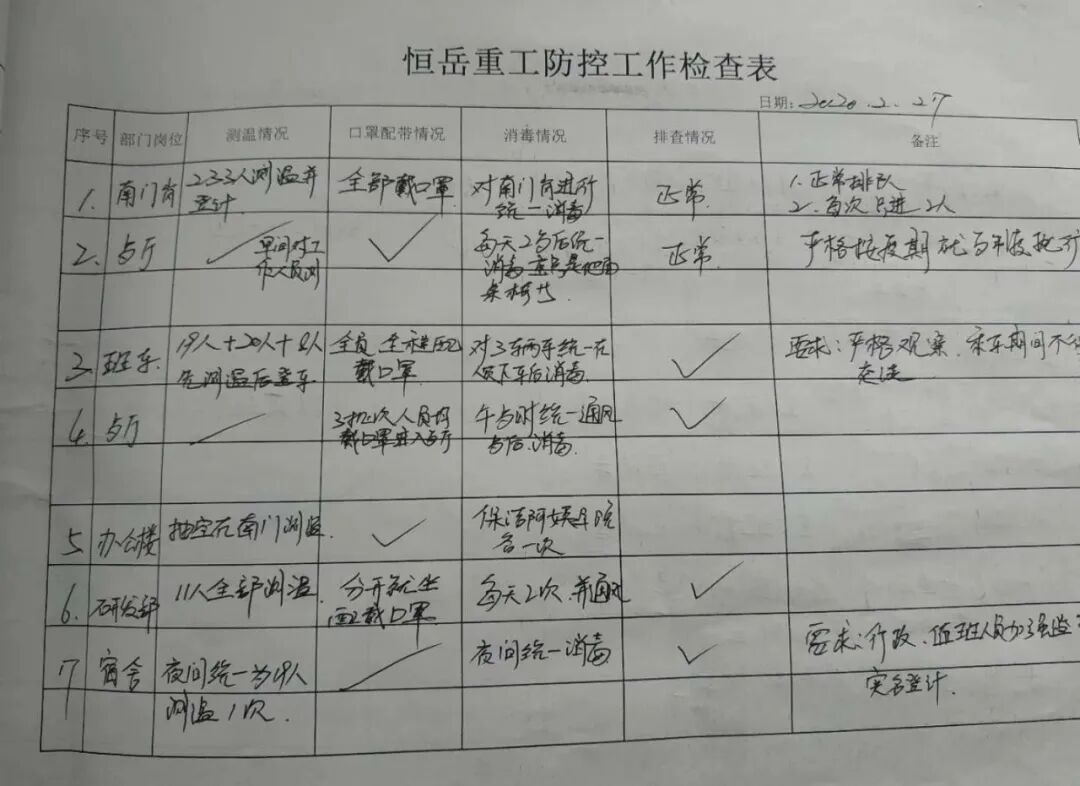 恒岳重工防控工作检查表
日期: 2020.2.27
序号 部门岗位 测温情况 口罩配带情况 消毒情况 排查情况 备注
1. 南门岗 233人测温并 全部戴口罩 对南门岗进行 正常 1. 正常排队
登计 统一消毒 2. 每次只进2人
2. 与厅 早间对工 每天2与后统一 正常 严格按 期
作人员测 消毒 地面
桌椅
3. 班车 19人+20人+8人 全员 对3车两车统一在 要求:严格观察,乘车期间不
先测温后登车 戴口罩 人员下车后消毒
4. 与厅 3批次人员均 午与时统一通风
戴口罩进入与厅 与后消毒
5 办公楼 抽空在南门测温 保洁阿姨早晚
各一次
6. 研发部 11人全部测温 分开就坐 每天2次,并通风
戴口罩
7 宿舍 夜间统一为9人 夜间统一消毒 要求:行政、值班人员加强监
测温1次. 实名登计.